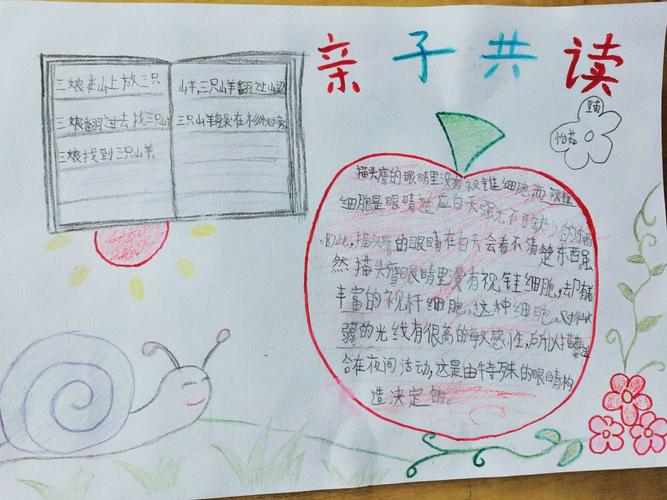 亲子共读
三娘在山上放三只
三娘翻过去找三只山羊
三娘找到三只山羊。
山羊,三只山羊翻过山梁
三只山羊
怡茹
猫头鹰的眼睛里没有视锥细胞而视锥
细胞是眼睛适应白天强光不可缺少的东西
因此,猫头鹰的眼睛在白天会看不清楚东西虽
然猫头鹰眼睛里没有视锥细胞,却有着
丰富的视杆细胞。这种细胞。对微
弱的光线有很高的敏感性,所以猫头鹰适
合在夜间活动,这是由特殊的眼睛构
造决定的。